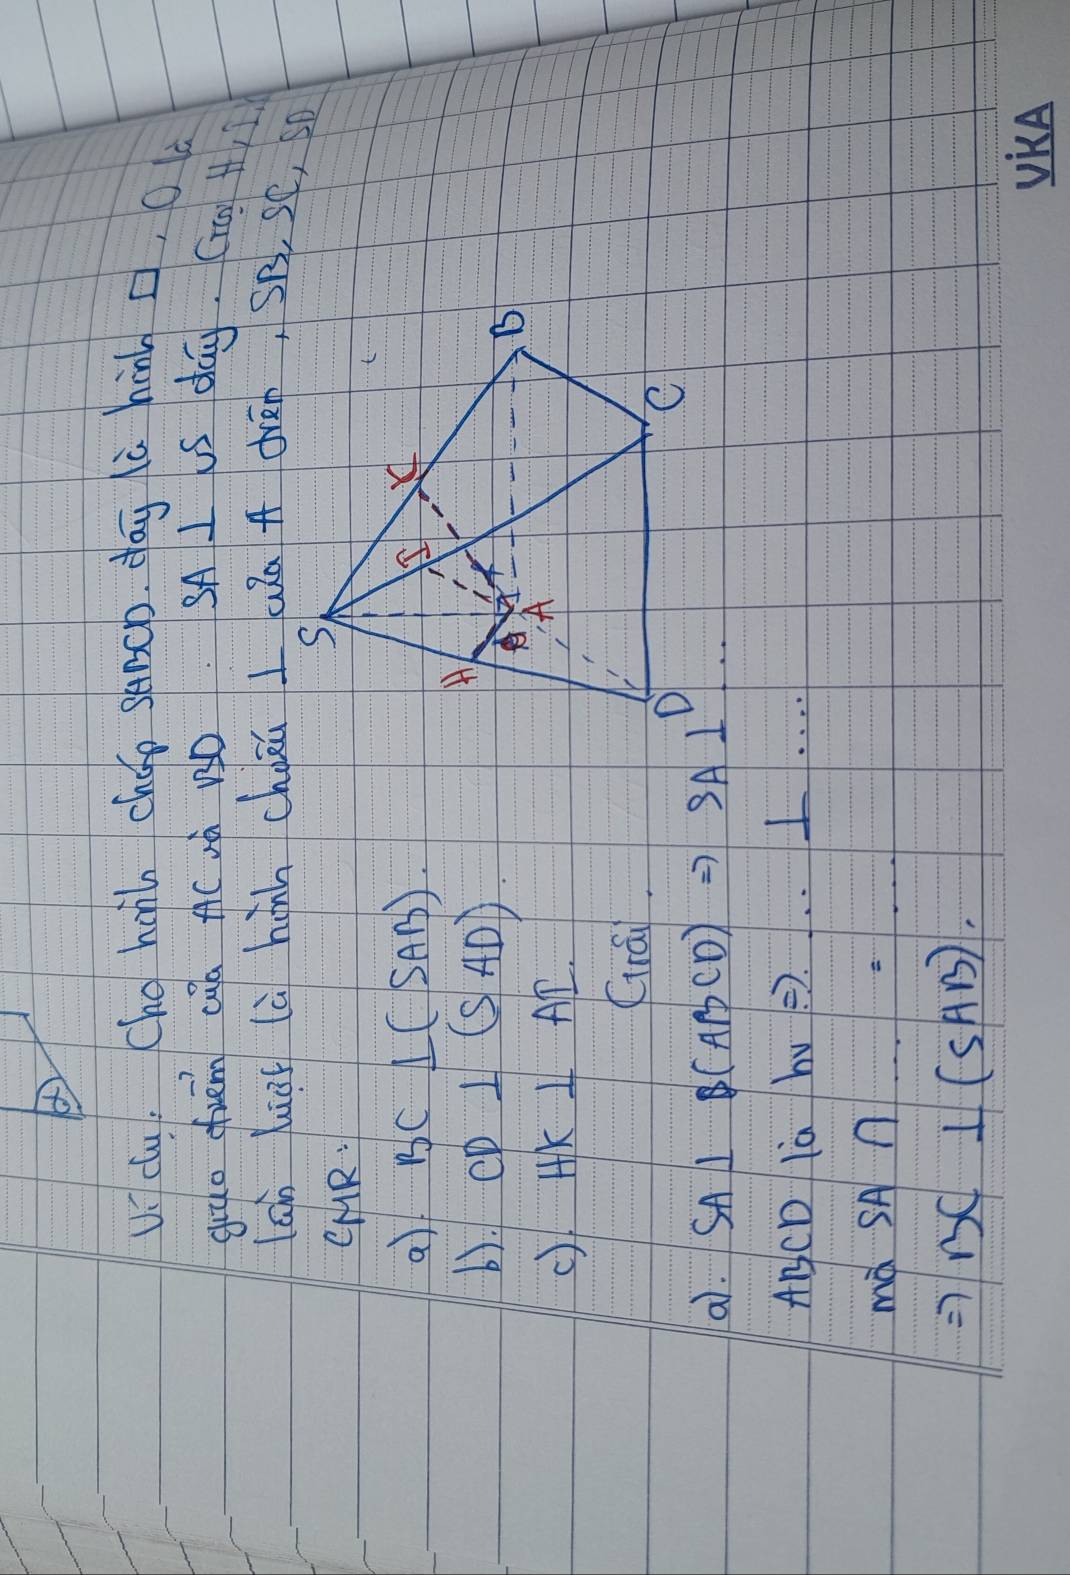 Ví dụ: Cho hình chóp SABCD. đáy là hình □, O là
giao điểm của AC và BD. SA ⊥ vs đáy. Gọi H, I,
lần lượt là hình chiếu ⊥ của A trên, SB, SC, SD
CMR:
a). BC ⊥ (SAB).
b). CD ⊥ (SAD).
c). HK ⊥ AI.
S
K
I
H
A
B
C
D
Giải.
a). SA ⊥ (ABCD) => SA ⊥ ...
ABCD là hv => ... ⊥ ....
mà SA ∩ ... = ....
=> BC ⊥ (SAB).
VIKA